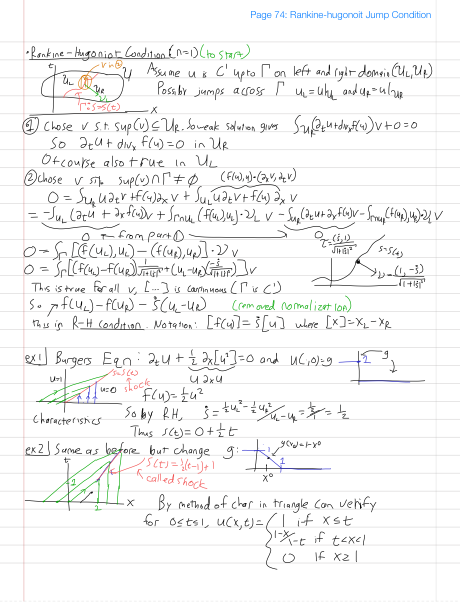 Page 74: Rankine-hugonoit Jump Condition
• Rankine-Hugoniot Condition (n=1) (to start)
Assume u is C' up to Γ on left and right domain (U_L, U_R)
Possibly jumps across Γ u_L = u|u_L and u_R = u|u_R
t
U_L
U_R
Γ: s=s(t)
x
① Chose v s.t. sup(v) ⊆ U_R. So weak solution gives ∫_{U_R} (∂_t u + div_x f(u)) v + 0 = 0
So ∂_t u + div_x f(u) = 0 in U_R
Of course also true in U_L
② Chose v s.t. sup(v) ∩ Γ ≠ ∅ (f(u),u)·(∂_x v, ∂_t v)
0 = ∫_{U_R} u ∂_t v + f(u) ∂_x v + ∫_{U_L} u ∂_t v + f(u) ∂_x v
= -∫_{U_L} (∂_t u + ∂_x f(u)) v + ∫_{Γ∩U_L} (f(u_L), u_L)·ν_L v - ∫_{U_R} (∂_t u + ∂_x f(u)) v - ∫_{Γ∩U_R} (f(u_R), u_R)·ν_L v
0 ← from part ① 0
0 = ∫_Γ [(f(u_L), u_L) - (f(u_R), u_R)]·ν v
τ = (ṡ,1)/√(1+|ṡ|²) s=s(t)
0 = ∫_Γ [(f(u_L) - f(u_R)) 1/√(1+|ṡ|²) + (u_L - u_R)(-ṡ/√(1+|ṡ|²))] v
ν = (1,-ṡ)/√(1+|ṡ|²)
This is true for all v, [...] is continuous (Γ is C')
So f(u_L) - f(u_R) - ṡ(u_L - u_R) (removed normalization)
This is R-H condition. Notation: [f(u)] = ṡ[u] where [x] = x_L - x_R
ex1| Burgers Eqn: ∂_t u + ½ ∂_x[u²] = 0 and u(,0)=g
u ∂_x u
s=s(t)
shock
u=1
u=0
f(u) = ½u²
So by RH, ṡ = ½u_L² - ½u_R² / u_L - u_R = ½/1 = ½
Characteristics
Thus s(t) = 0 + ½t
ex2| Same as before but change g:
g(x0)=1-x0
t
s(t) = ½(t-1)+1
called shock
1
x0
1
x
By method of char in triangle can verify
for 0≤t≤1, u(x,t) = { 1 if x≤t
1-x/1-t if t<x<1
0 if x≥1